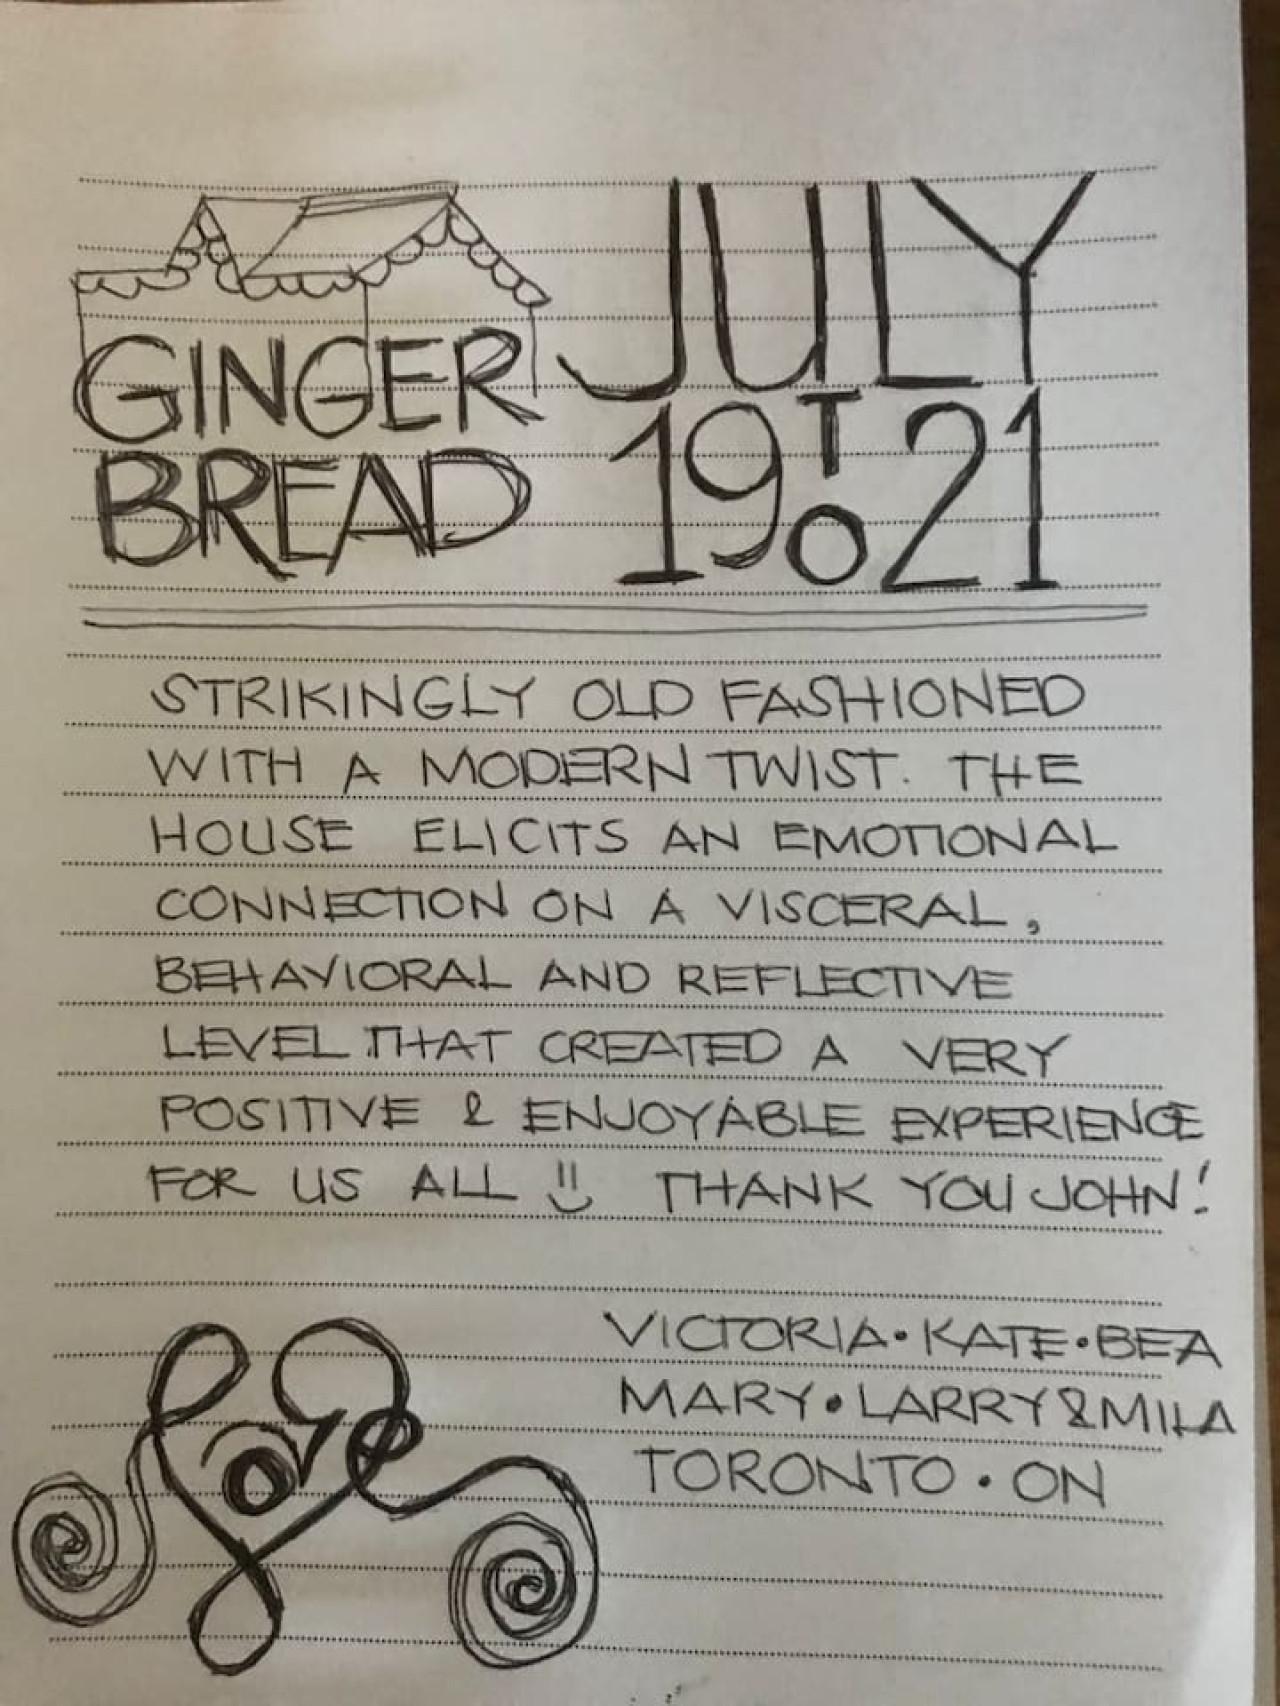 GINGER
BREAD
JULY
19 TO 21
STRIKINGLY OLD FASHIONED
WITH A MODERN TWIST. THE
HOUSE ELICITS AN EMOTIONAL
CONNECTION ON A VISCERAL,
BEHAVIORAL AND REFLECTIVE
LEVEL THAT CREATED A VERY
POSITIVE & ENJOYABLE EXPERIENCE
FOR US ALL :) THANK YOU JOHN!
Love
VICTORIA • KATE • BEA
MARY • LARRY & MILA
TORONTO • ON